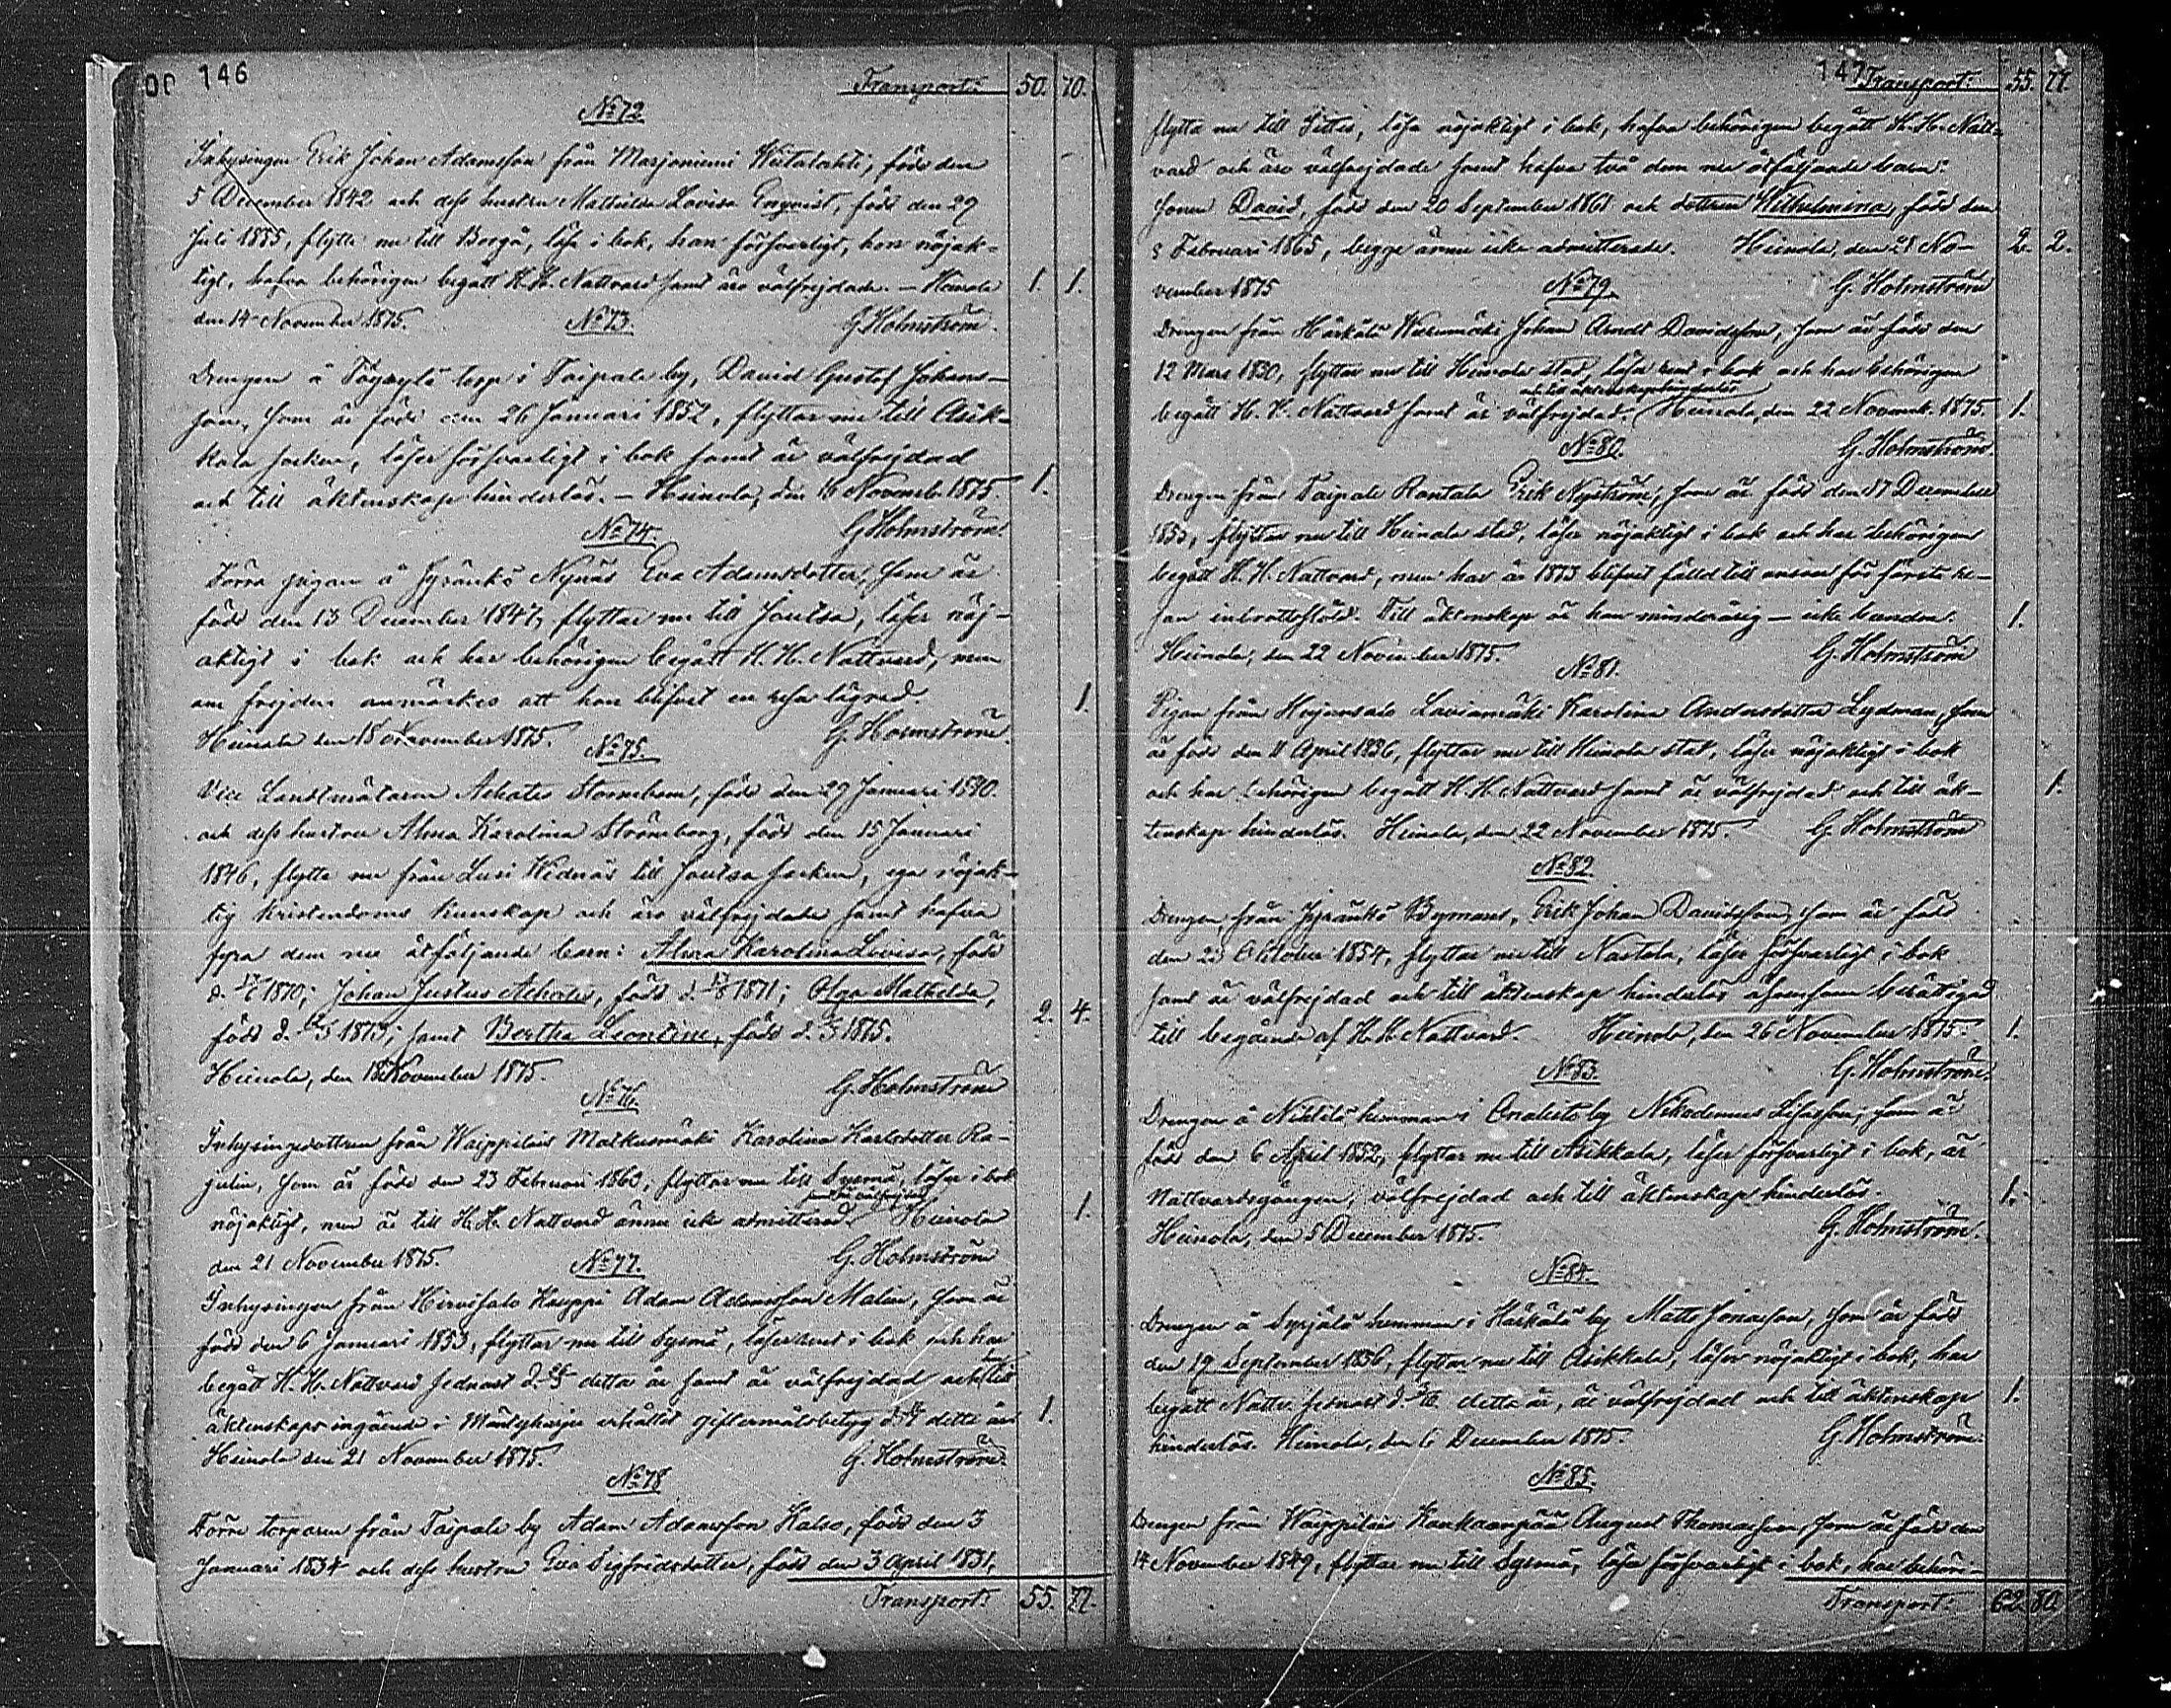 146
Transport: 50. 70.
No 72.
Inhysingen Erik Johan Adamsson från Marjoniemi född den
5 December 1842 och dess hustru Mathilda Lovisa Enqvist, född den 29
Juli 1855, flytta nu till Borgå, läsa i bok, han försvarligt, hon nöjak-
tigt, hafva behörigen begått H. H. Nattvard samt äro välfrejdade. – Heinola 1. 1.
den 14 November 1875. G. Holmström.
No 73.
Drengen å torp i Taipale by, David Gustaf Johans-
son, som är född den 26 Januari 1852, flyttar nu till Asik-
kala socken, läser försvarligt i bok samt är välfrejdad
och till äktenskap hinderlös. – Heinola, den 16 November 1875. 1.
No 74. G. Holmström.
Förra pigan å Jyränkö Nynäs Eva Adamsdotter, som är
född den 13 December 1847, flyttar nu till Joutsa, läser nöj-
aktigt i bok och har behörigen begått H. H. Nattvard, men
om frejden anmärkes att hon blifvit en resa lägrad. 1.
Heinola den 18 November 1875. G. Holmström.
No 75.
Vice Landtmätaren Achates född den 29 Januari 1830.
och dess hustru Alma Karolina Strömborg, född den 15 Januari
1846, flytta nu från Lusi Hednäs till Joutsa socken, ega nöjak-
tig kristendoms kunskap och äro välfrejdade samt hafva
fyra dem nu åtföljande barn: Alma Karolina Lovisa, född
d. 1870; Johan Justus Achates, född d. 1871; Olga Mathilda,
född d. 1873; samt Bertha Leontine, född d. 1875. 2. 4.
Heinola, den 18 November 1875.
No 76. G. Holmström
Inhysingsdottren från Waippilais Matkusmäki Karolina Karlsdotter Ra-
julin, som är född den 23 Februari 1863, flyttar nu till Sysmä, läser i bok
samt är välfrejdad
nöjaktigt, men är till H. H. Nattvard ännu icke admitterad. Heinola 1.
den 21 November 1875. G. Holmström
No 77.
Inhysingen från Hirvisalo Kauppi Adam Adamsson Malin, som är
född den 6 Januari 1853, flyttar nu till Sysmä, läser rent i bok och har
begått H. H. Nattvard sednast d. detta år samt är välfrejdad och till
äktenskaps ingående i Mäntyharju erhållit giftermålsbetyg d. detta år. 1.
Heinola den 21 November 1875. G. Holmström.
No 78
Förre torparen från Taipale by Adam Adamsson född den 3
Januari 1834 och dess hustru Eva Sigfridsdotter, född den 3 April 1831,
Transport: 55. 77.
147
Transport: 55. 77.
flytta nu till Iittis, läsa nöjaktigt i bok, hafva behörigen begått H. H. Natt-
vard och äro välfrejdade samt hafva två dem nu åtföljande barn:
sonen David, född den 20 September 1861 och dottren Wilhelmina, född den
Februari 1865, begge ännu icke admitterade. Heinola, den 28 No- 2. 2.
vember 1875 G. Holmström
No 79.
Drengen från Härkälä Johan Davidsson, som är född den
12 Mars 1830, flyttar nu till Heinola stad, läser rent i bok och har behörigen
och till äktenskap hinderlös
begått H. H. Nattvard samt är välfrejdad. Heinola, den 22 Novemb. 1875. 1.
No 80. G. Holmström.
Drengen från Taipale Rantala Erik Nyström, som är född den 17 December
1853, flyttar nu till Heinola stad, läser nöjaktigt i bok och har behörigen
begått H. H. Nattvard, men har år 1873 blifvit fälld till ansvar för första re-
san inbrottsstöld. Till äktenskap är han minderårig – icke bunden. 1.
Heinola, den 22 November 1875. G. Holmström
No 81.
Pigan från Heijansalo Laviamäki Karolina Andersdotter Lydman, som
är född den 11 April 1836, flyttar nu till Heinola stad, läser nöjaktigt i bok
och har behörigen begått H. H. Nattvard samt är välfrejdad och till äk- 1.
tenskap hinderlös. Heinola, den 22 November 1875. G. Holmström
No 82
Drengen från Jyränkö Bymans, Erik Johan Davidsson, som är född
den 23 October 1854, flyttar nu till Nastola, läser försvarligt i bok
samt är välfrejdad och till äktenskap hinderlös äfvensom berättigad
till begående af H. H. Nattvard. Heinola, den 26 November 1875. 1.
No 83. G. Holmström.
Drengen å hemman i Onalis by Nikodemus som är
född den 6 April 1852, flyttar nu till Asikkala, läser försvarligt i bok, är
Nattvardsgången, välfrejdad och till äktenskap hinderlös. 1.
Heinola, den 5 December 1875. G. Holmström.
No 84.
Drengen å Syrjälä hemman i Härkälä by Matts Jonasson, som är född
den 19 September 1856, flyttar nu till Asikkala, läser nöjaktigt i bok, har
begått Nattv. sednast d. detta år, är välfrejdad och till äktenskap 1.
hinderlös. Heinola, den 6 December 1875. G. Holmström.
No 85.
Drengen från Waippilais Kankaanpää August Thomasson, som är född den
14 November 1849, flyttar nu till Sysmä, läser försvarligt i bok, har behöri-
Transport: 62. 80.